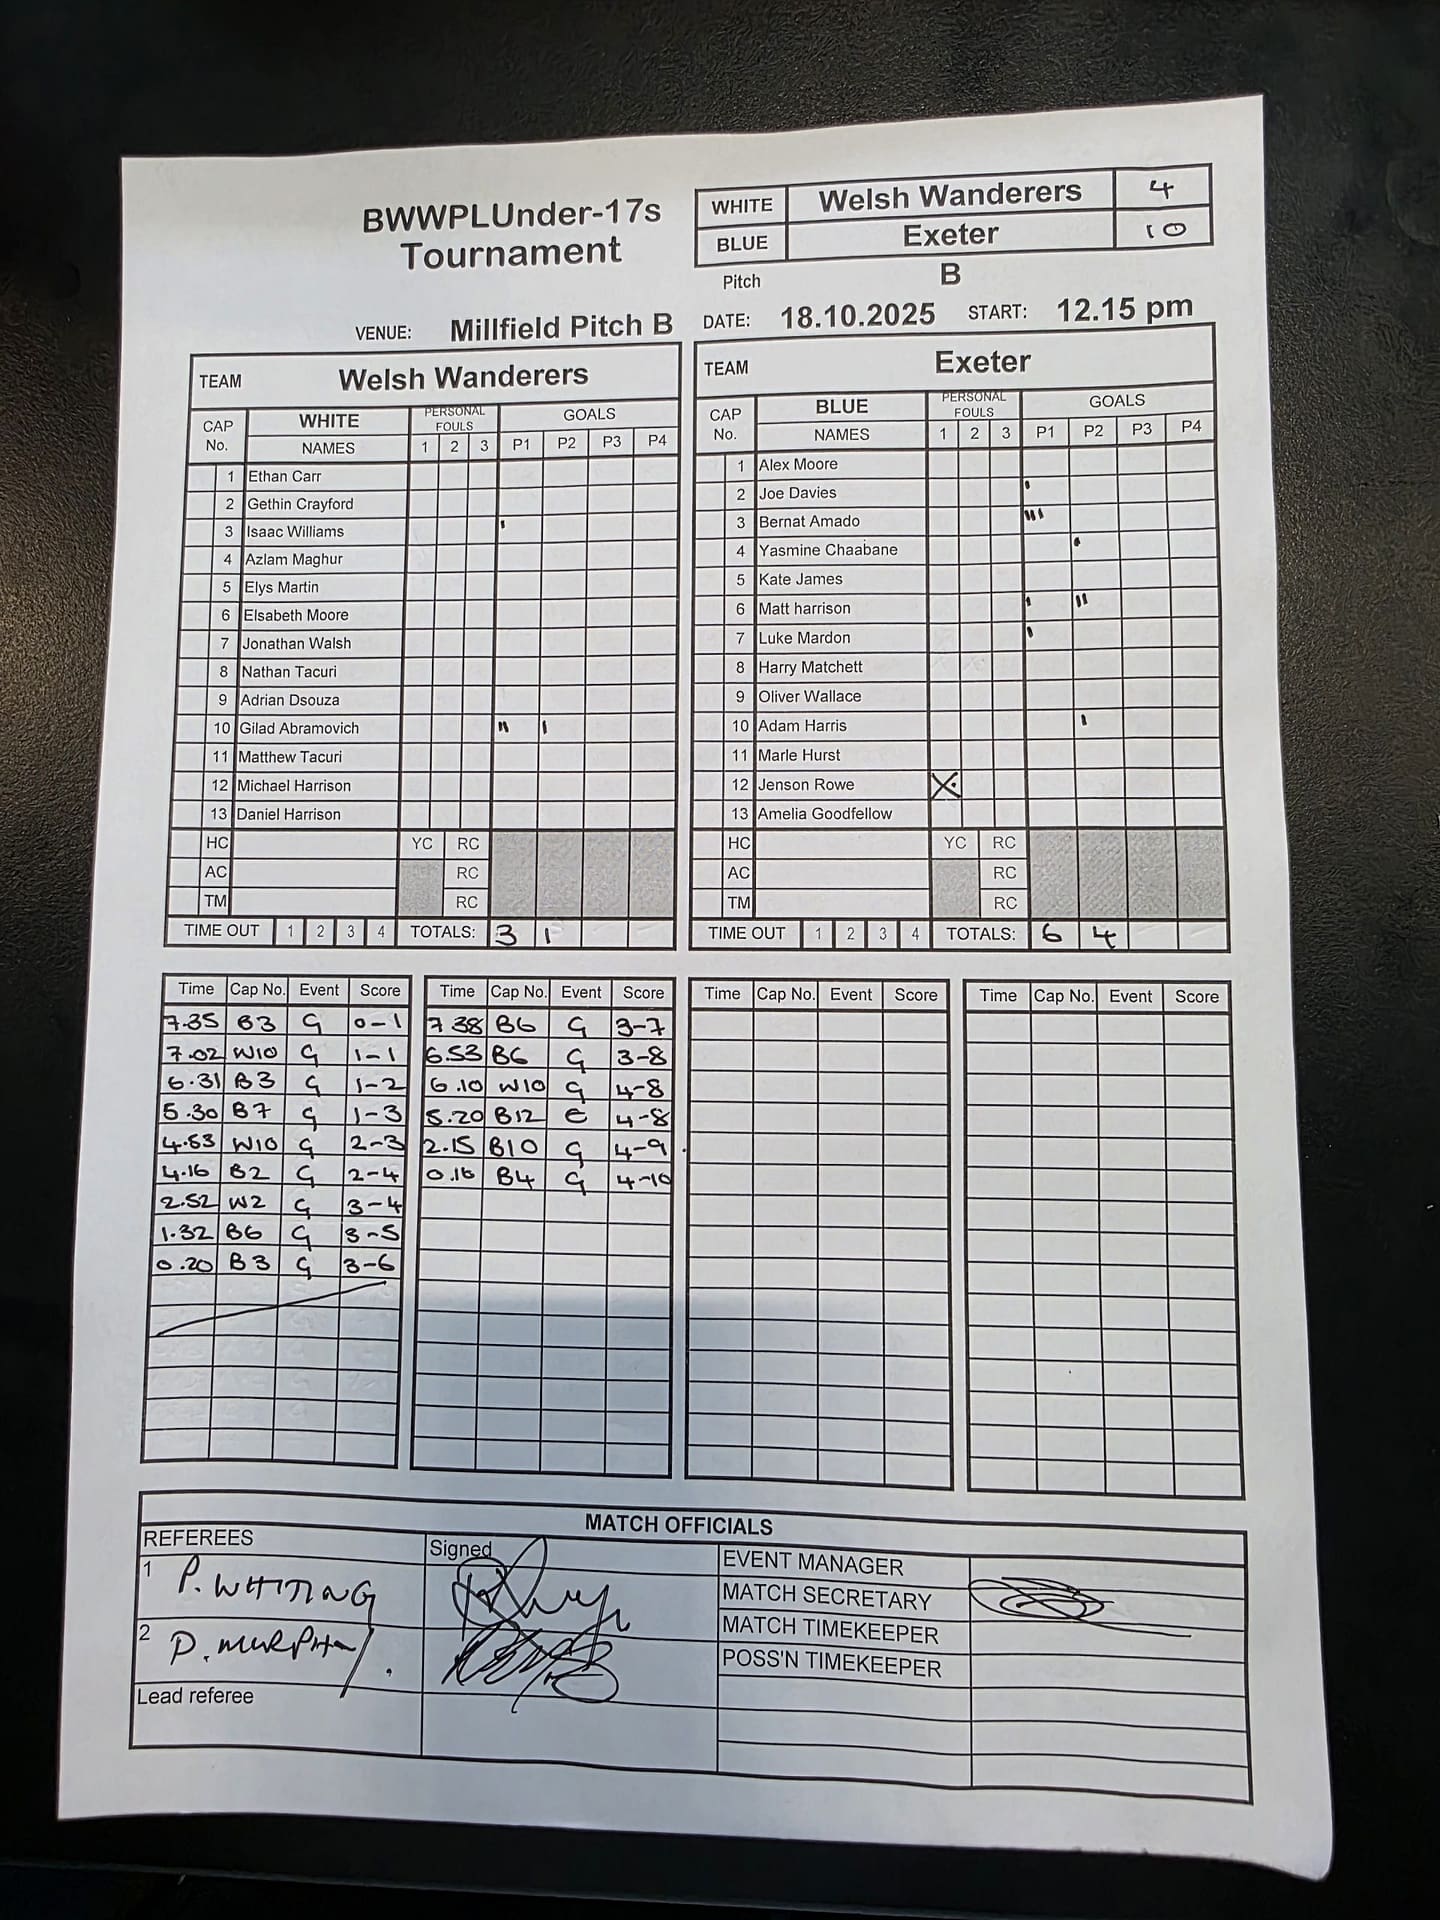 BWWPLUnder-17s
Tournament
WHITE Welsh Wanderers 4
BLUE Exeter 10
Pitch B
VENUE: Millfield Pitch B DATE: 18.10.2025 START: 12.15 pm
TEAM Welsh Wanderers
CAP No. WHITE PERSONAL FOULS GOALS
NAMES 1 2 3 P1 P2 P3 P4
1 Ethan Carr
2 Gethin Crayford
3 Isaac Williams I
4 Azlam Maghur
5 Elys Martin
6 Elsabeth Moore
7 Jonathan Walsh
8 Nathan Tacuri
9 Adrian Dsouza
10 Gilad Abramovich II I
11 Matthew Tacuri
12 Michael Harrison
13 Daniel Harrison
HC YC RC
AC RC
TM RC
TIME OUT 1 2 3 4 TOTALS: 3 1
TEAM Exeter
CAP No. BLUE PERSONAL FOULS GOALS
NAMES 1 2 3 P1 P2 P3 P4
1 Alex Moore
2 Joe Davies I
3 Bernat Amado III
4 Yasmine Chaabane I
5 Kate James
6 Matt harrison I II
7 Luke Mardon I
8 Harry Matchett
9 Oliver Wallace
10 Adam Harris I
11 Marle Hurst
12 Jenson Rowe X
13 Amelia Goodfellow
HC YC RC
AC RC
TM RC
TIME OUT 1 2 3 4 TOTALS: 6 4
Time Cap No. Event Score
7.35 B3 G 0-1
7.02 W10 G 1-1
6.31 B3 G 1-2
5.30 B7 G 1-3
4.53 W10 G 2-3
4.16 B2 G 2-4
2.52 W2 G 3-4
1.32 B6 G 3-5
0.20 B3 G 3-6
Time Cap No. Event Score
7 38 B6 G 3-7
6.53 B6 G 3-8
6.10 W10 G 4-8
5.20 B12 E 4-8
2.15 B10 G 4-9
0.16 B4 G 4-10
Time Cap No. Event Score
Time Cap No. Event Score
MATCH OFFICIALS
REFEREES Signed
1 P. WHITING
2 D. MURPHY
Lead referee
EVENT MANAGER
MATCH SECRETARY
MATCH TIMEKEEPER
POSS'N TIMEKEEPER